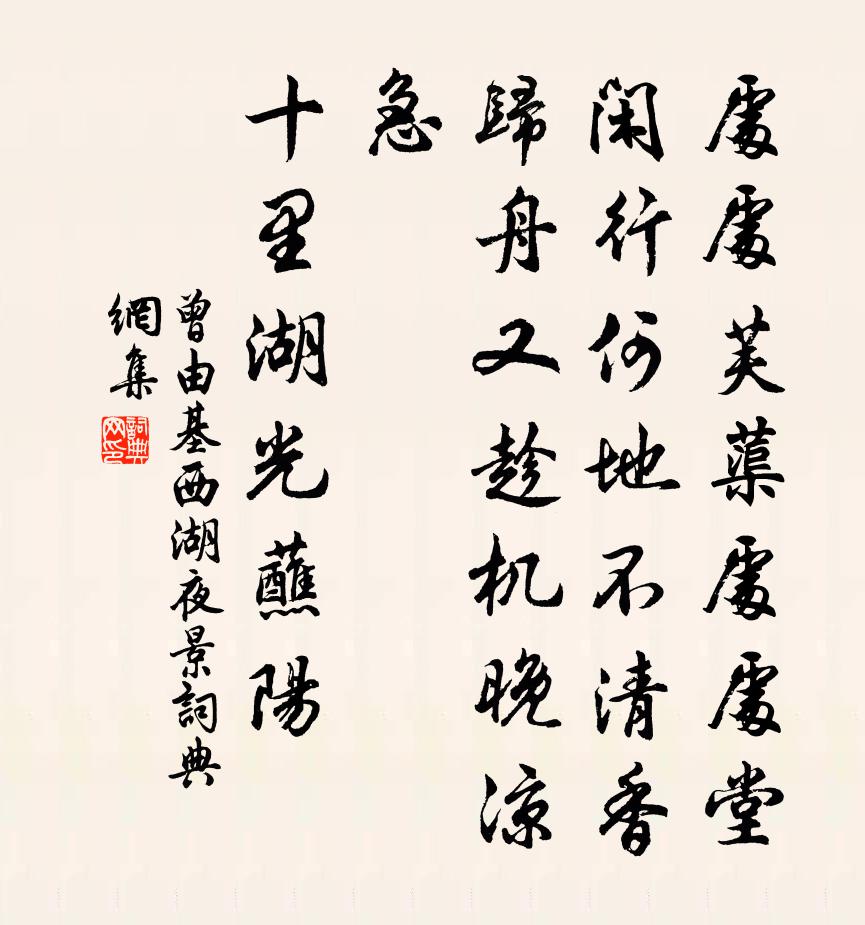 處處芙蕖處處堂
閑行何地不清香
歸舟又趁机晚涼
急
十里湖光蘸陽
曾由基西湖夜景詞典
網集
詞典
网印